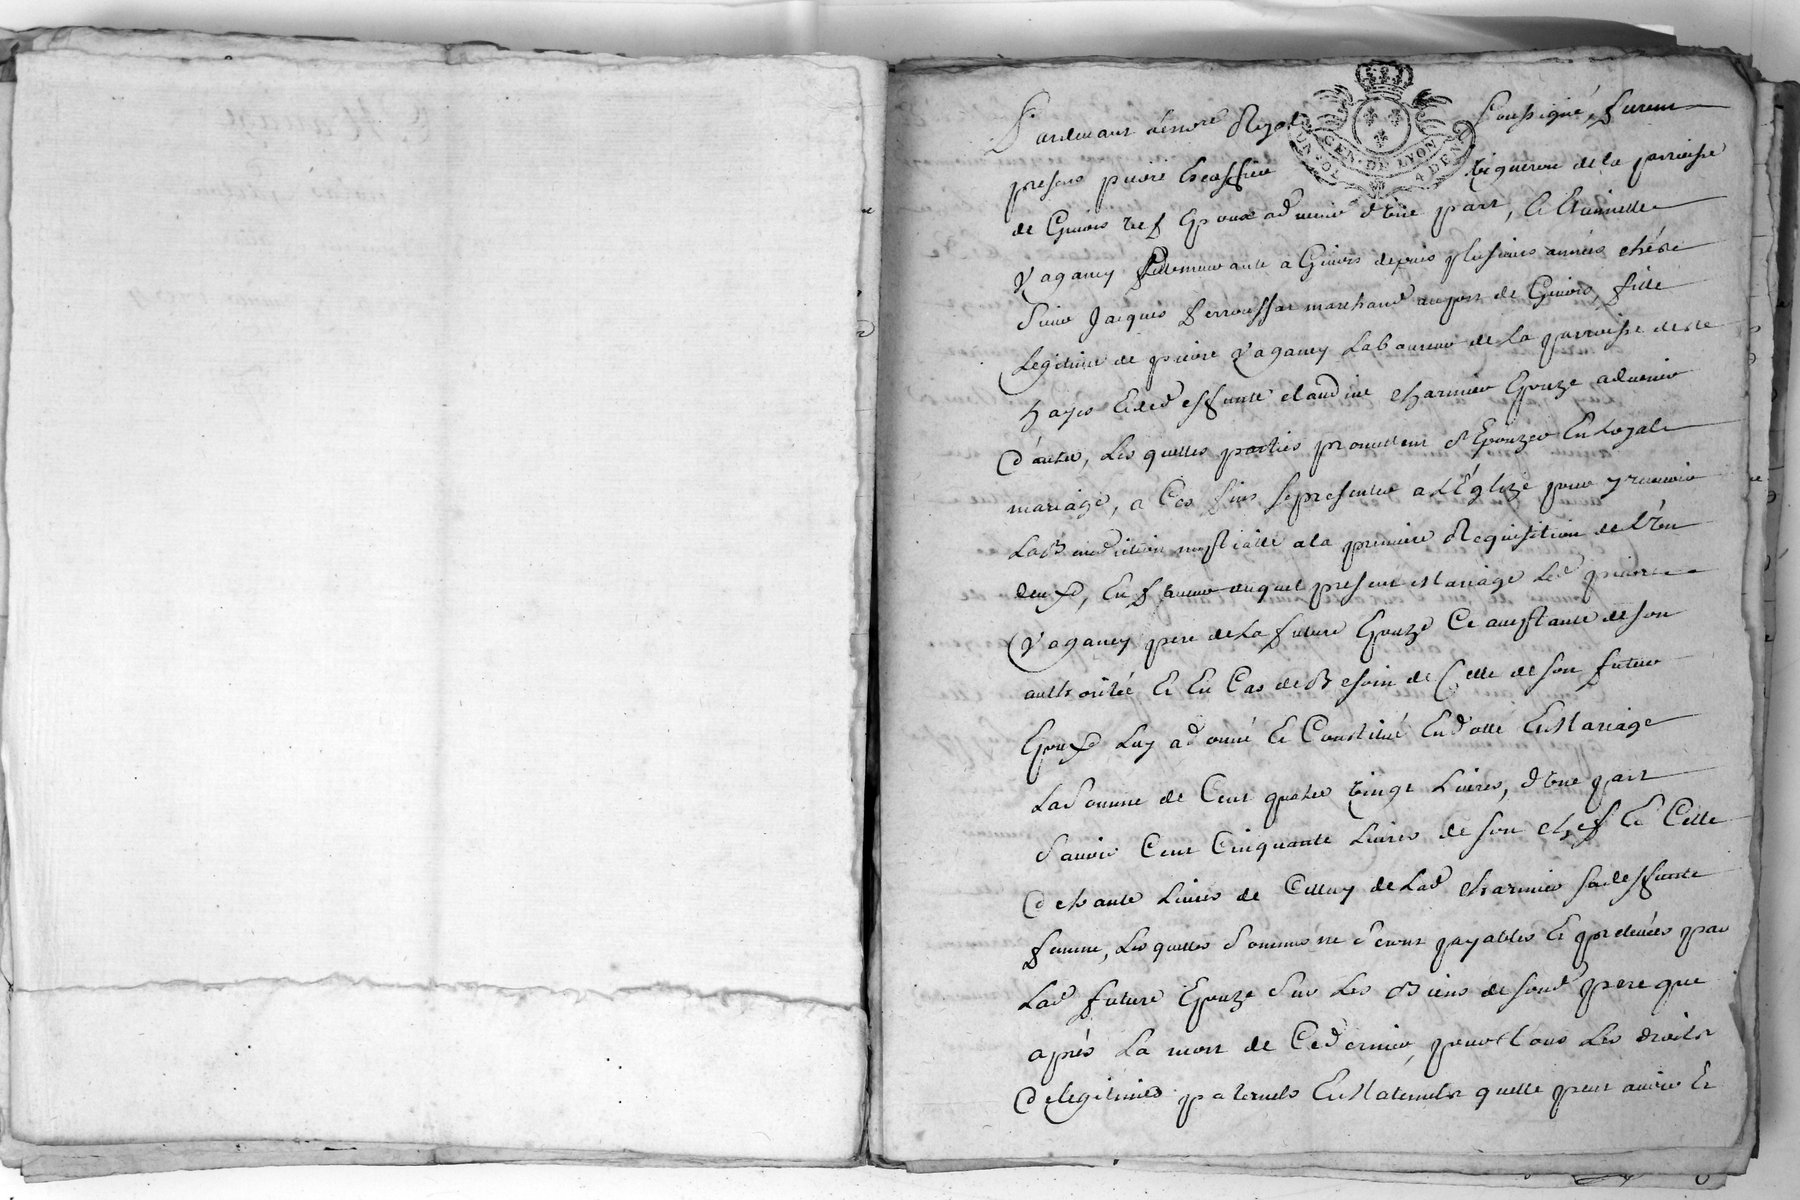 Pardevant Le no.re Royal soussigné, furent
presens pierre vigneron de la parroisse
de Givors v.ef Epoux advenir d'Une part, Et Etiennette
Vaganey demeurante a Givors depuis plusieurs années chés le
sieur Jacques perroussat marchand au port de Givors, fille
Legitime de pierre Vaganey Laboureur de La parroisse de
hayes Et de deffunte claudine charmier Epouze advenir
d'autre, Les quelles parties promettent s'Epouzer En Loyal
mariage, a Ces fins se presenter a L'Eglize pour y recevoir
La Benediction nuptialle a la premiere Requisition de L'Un
deux, En faveur duquel present Mariage Led pierre
Vaganey pere de La future Epouze Ce acceptante de son
authorité Et En Cas de Besoin de Celle de son futur
Epoux Luy a donné Et Constitué En dotte Et Mariage
La Somme de Cent quatre vingt Livres, d'Une part
Sauoir Cent Cinquante Livres de son chef Et Celle
de trante Livres de Celluy de Lad charmier sa deffunte
femme, Les quelles Sommes ne Seront payables Et prelevées par
Lad future Epouze Sur Les Biens de sond pere que
après La mort de Ce dernier, pour tous Les droits
de legitimes paternels Et Maternels quelle peut avoir Et
GEN · DE LYON
4 DEN